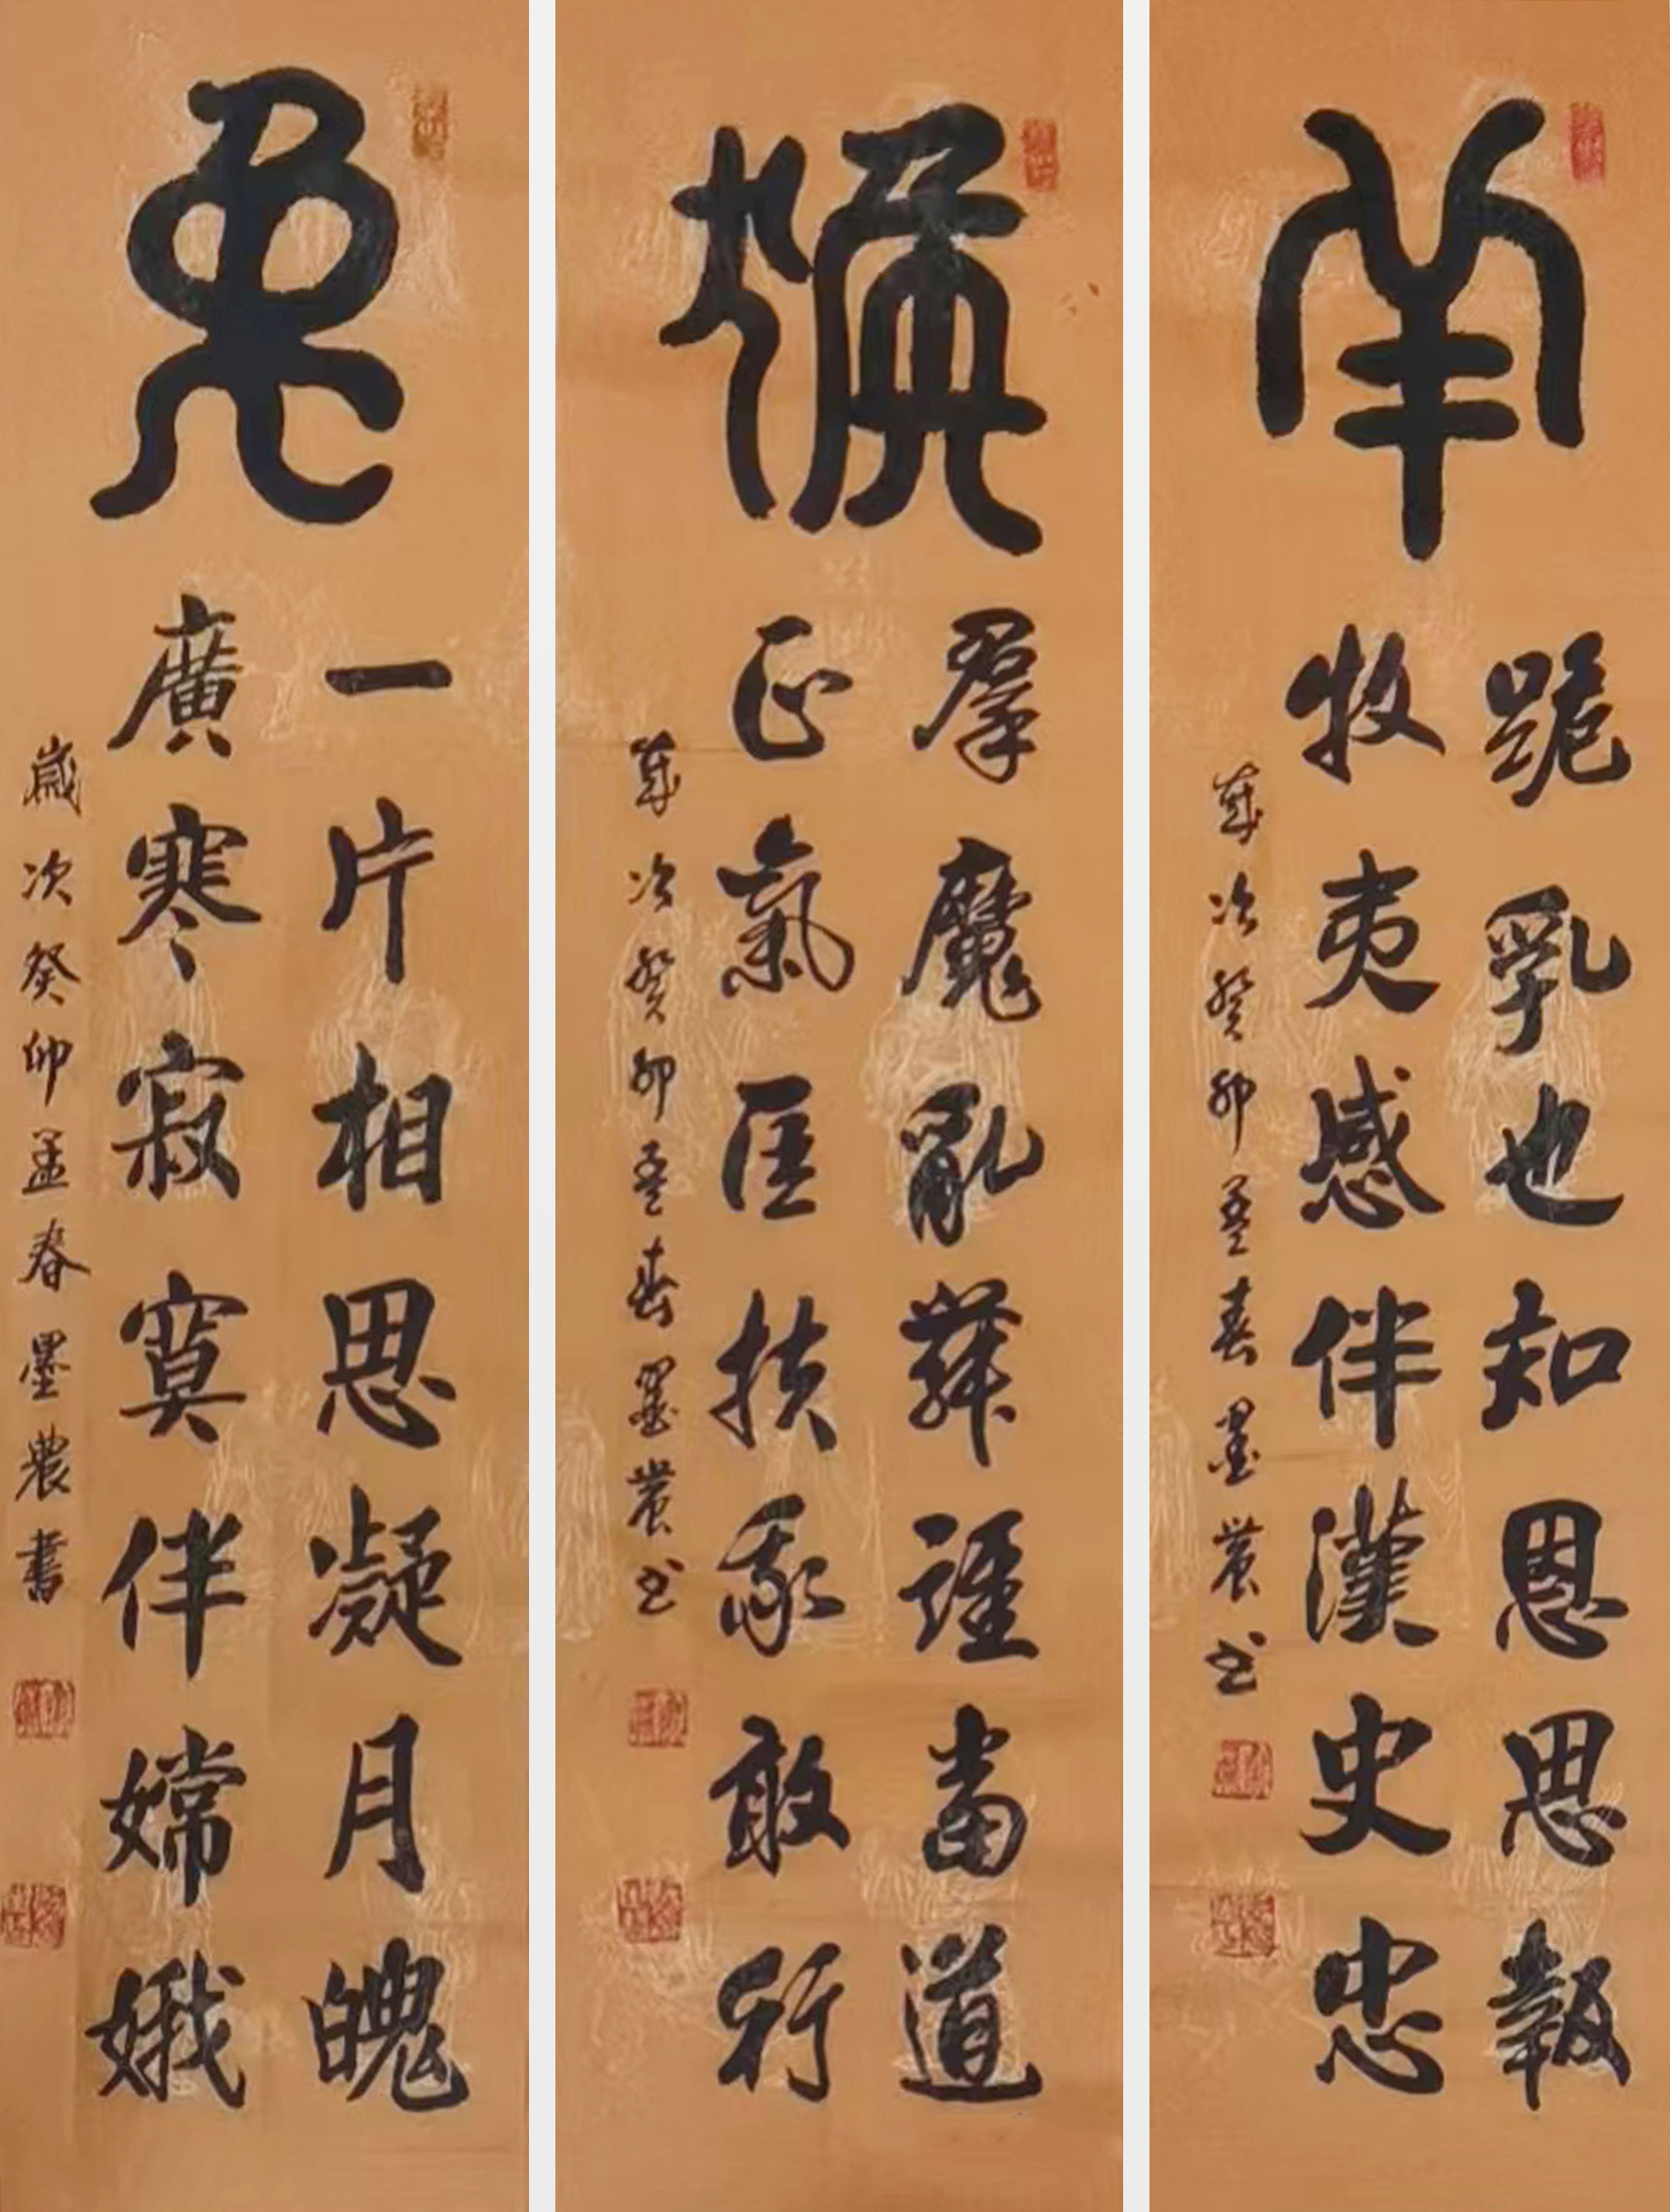 羊
跪乳也知恩思報
牧夷感伴漢史忠
歲次癸卯孟春墨農书
猴
羣魔亂舞誰當道
正氣匡扶我敢行
歲次癸卯孟春墨農书
兔
一片相思凝月魄
廣寒寂寞伴嫦娥
歲次癸卯孟春墨農書